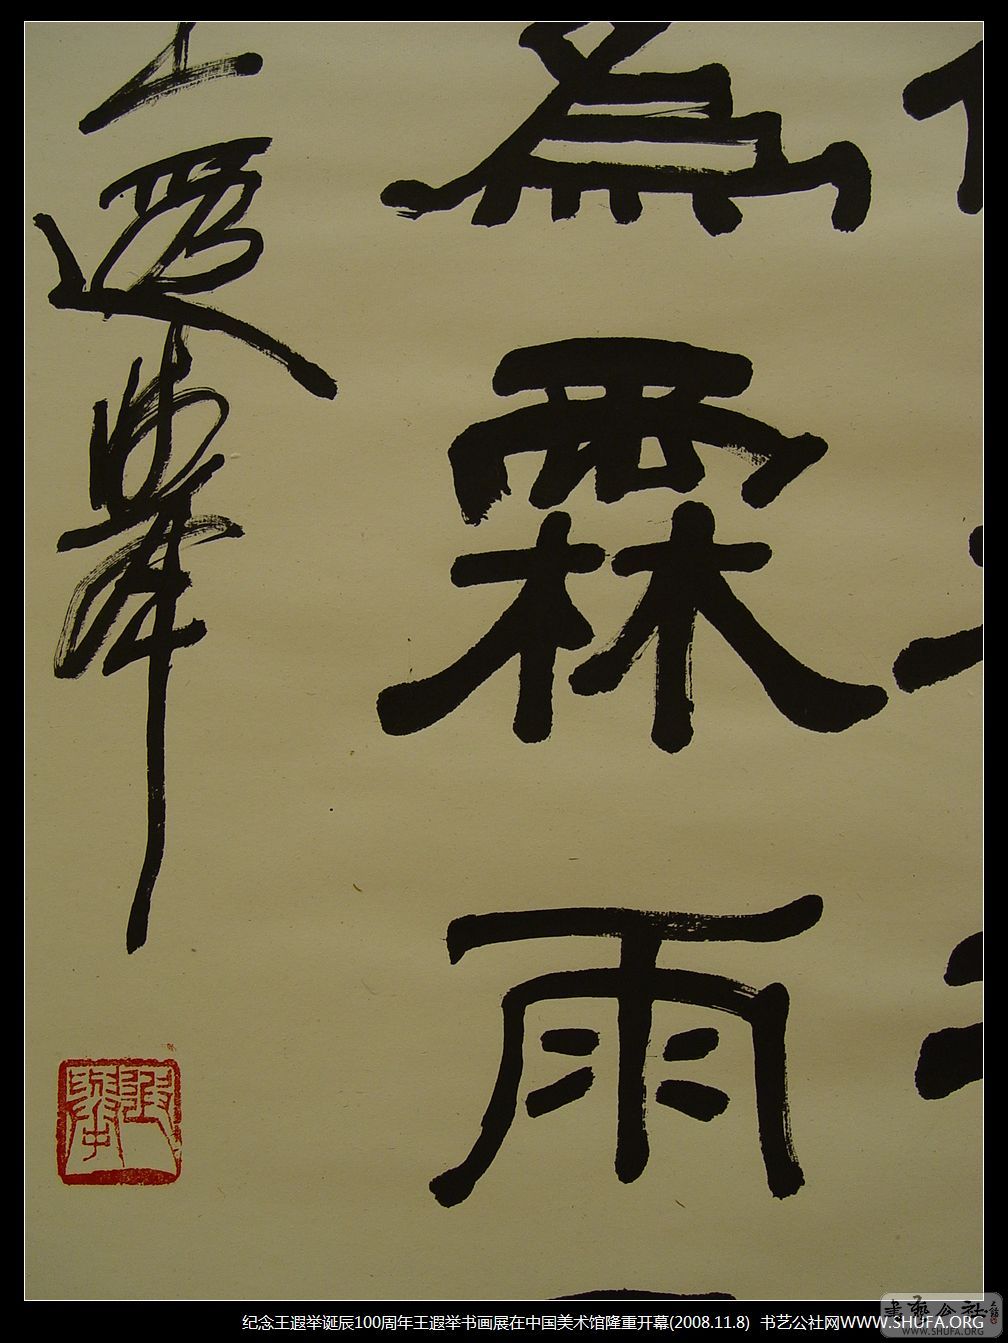 為霖雨
王遐舉
遐舉
纪念王遐举诞辰100周年王遐举书画展在中国美术馆隆重开幕(2008.11.8) 书艺公社网WWW.SHUFA.ORG
书艺公社
WWW.SHUFA.ORG